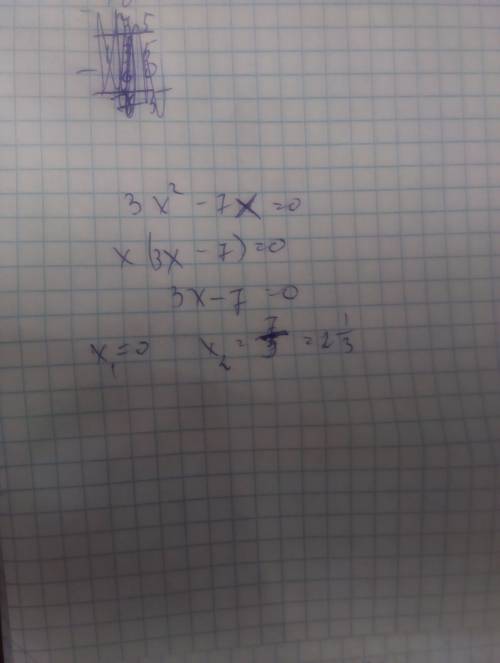 3x² - 7x = 0
x(3x - 7) = 0
3x - 7 = 0
x₁ = 0 x₂ = 7/3 = 2 1/3